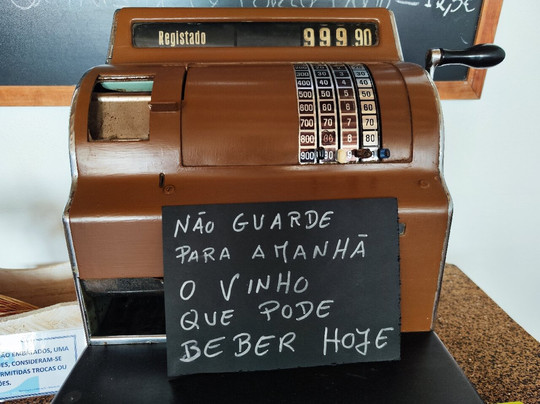 Registado 999,90
300 30 3 30
400 40 4 40
500 50 5 50
600 60 6 60
700 70 7 70
800 80 8 80
900 90
NÃO GUARDE
PARA AMANHÃ
O VINHO
QUE PODE
BEBER HOJE
ÃO EMBALADOS, UMA
ES, CONSIDERAM-SE
ERMITIDAS TROCAS OU
ÕES.